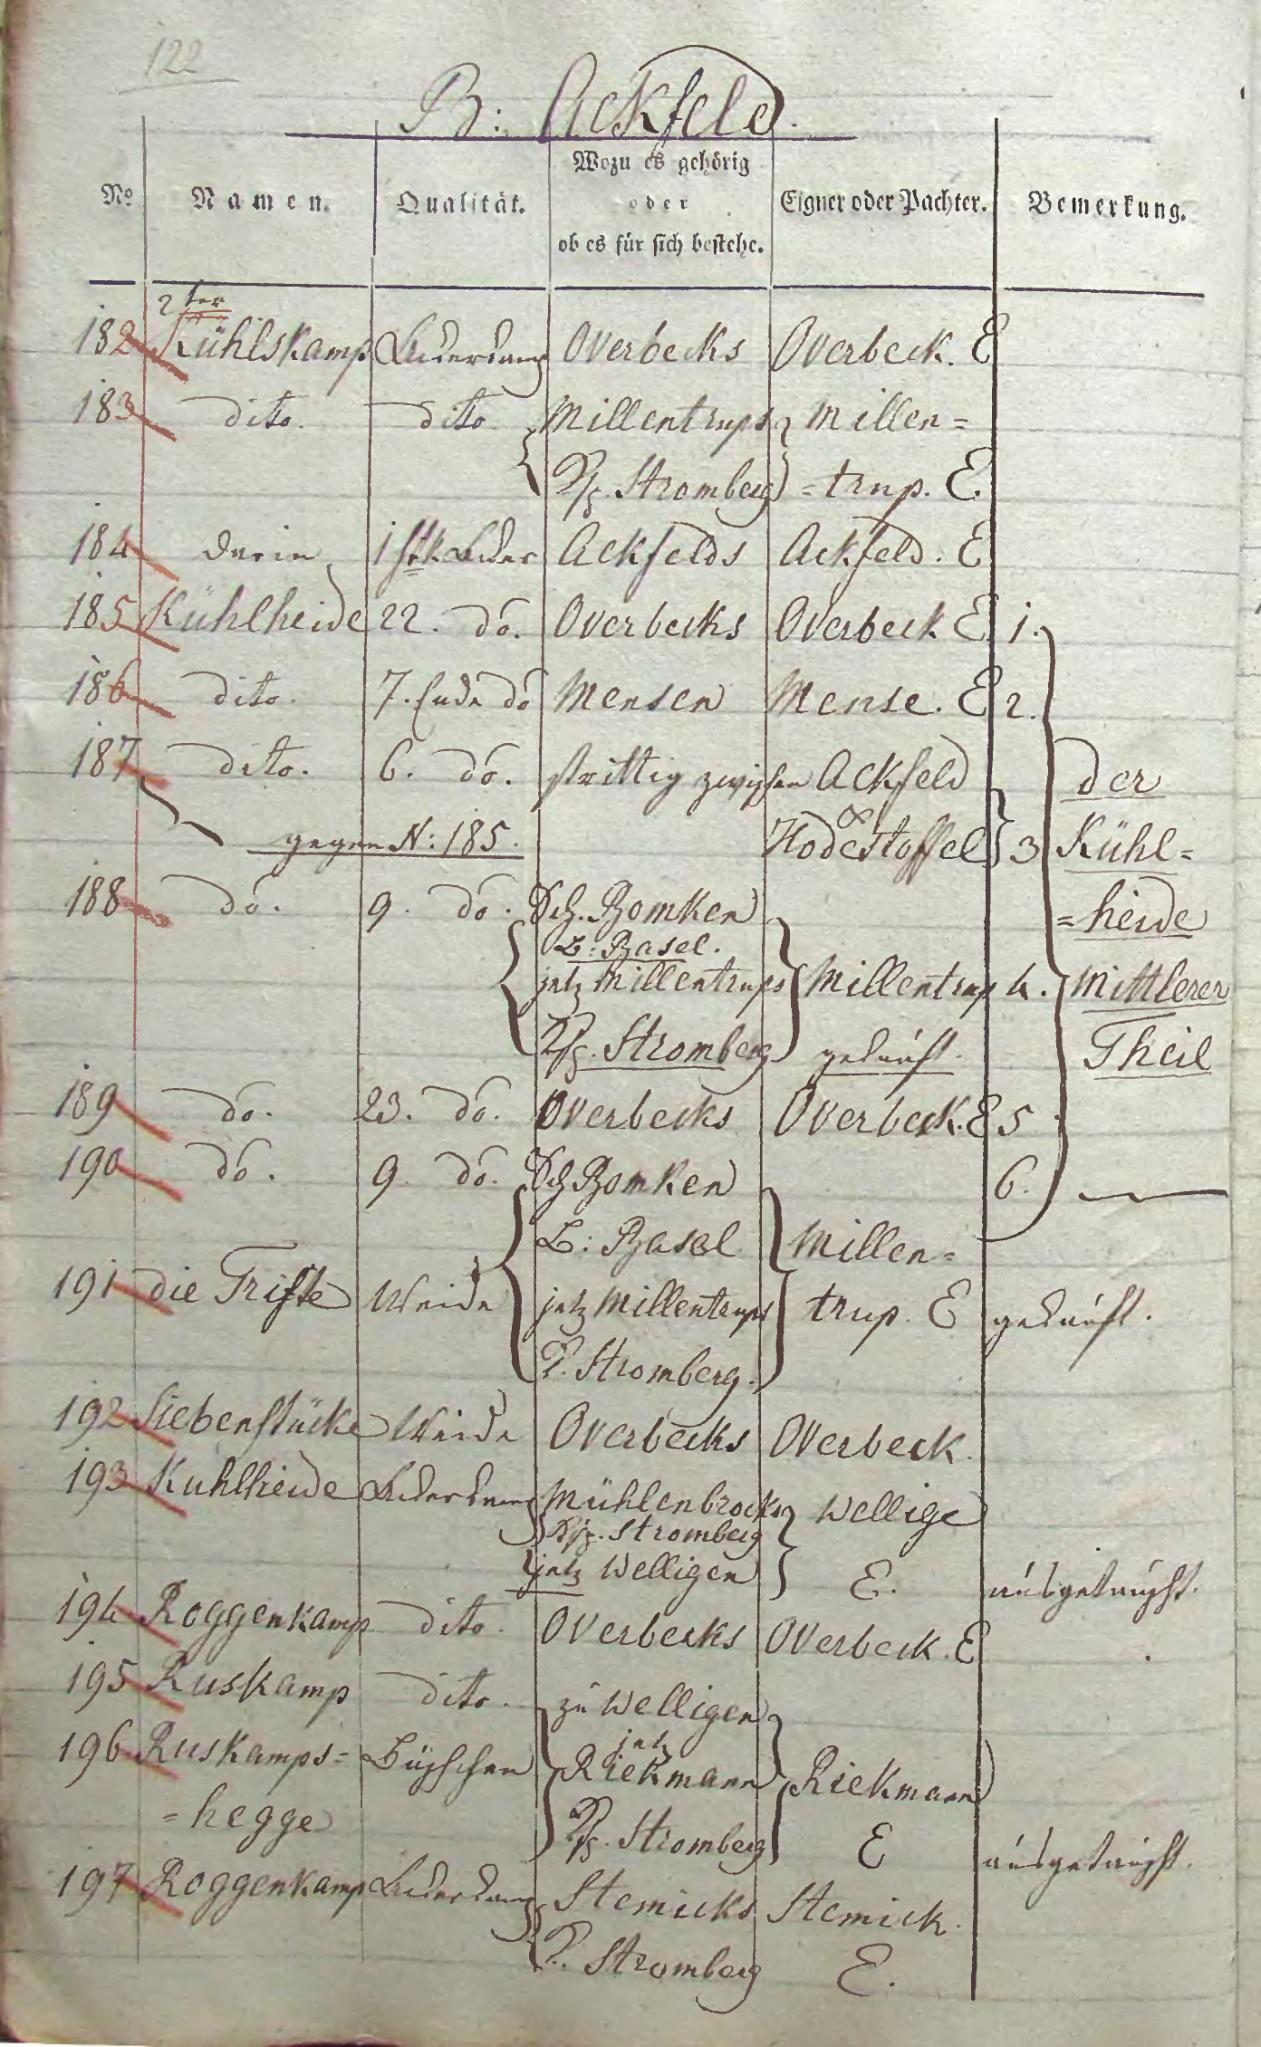 122
B: Ackfeld.
No. Namen. Qualität. Wozu es gehörig oder ob es für sich bestehe. Eigner oder Pachter. Bemerkung.
2ter
182 Kühlskamp Ackerkamp Overbecks Overbeck. E
183 dito. dito. Millentrups Millen=
Ksp. Stromberg =trup. E.
184 darin 1 stk Acker Ackfelds Ackfeld. E
185 Kühlheide 22. do. Overbecks Overbeck E 1.
186 dito. 7. Ende do Mensen Mense. E 2.
187 dito. 6. do. strittig zwischen Ackfeld der
gegen N: 185. & Hodestoffel 3 Kühl=
188 do. 9. do. Sch. Bomken =heide
B: Basel.
jetz Millentrups Millentrup 4. Mittlerer
Ksp. Stromberg gekauft. Theil
189 do. 23. do. Overbecks Overbeck. E 5
190 do. 9. do. Sch Bomken 6.
B: Basel Millen=
191 die Trifte Weide jetz Millentrups trup. E gekauft.
K. Stromberg.
192 Siebenstücke Weide Overbecks Overbeck.
193 Kuhlheide Ackerkamp Mühlenbrocks Wellige
Ksp. Stromberg
jetz Welligen E. ausgetauscht.
194 Roggenkamp dito. Overbecks Overbeck. E
195 Ruskamp dito. zu Welligen
jetz
196 Ruskamps= Büschchen Riekmann Riekmann
=hegge Ksp. Stromberg E ausgetauscht.
197 Roggenkamp Ackerkamp Stemicks Stemick.
K. Stromberg E.